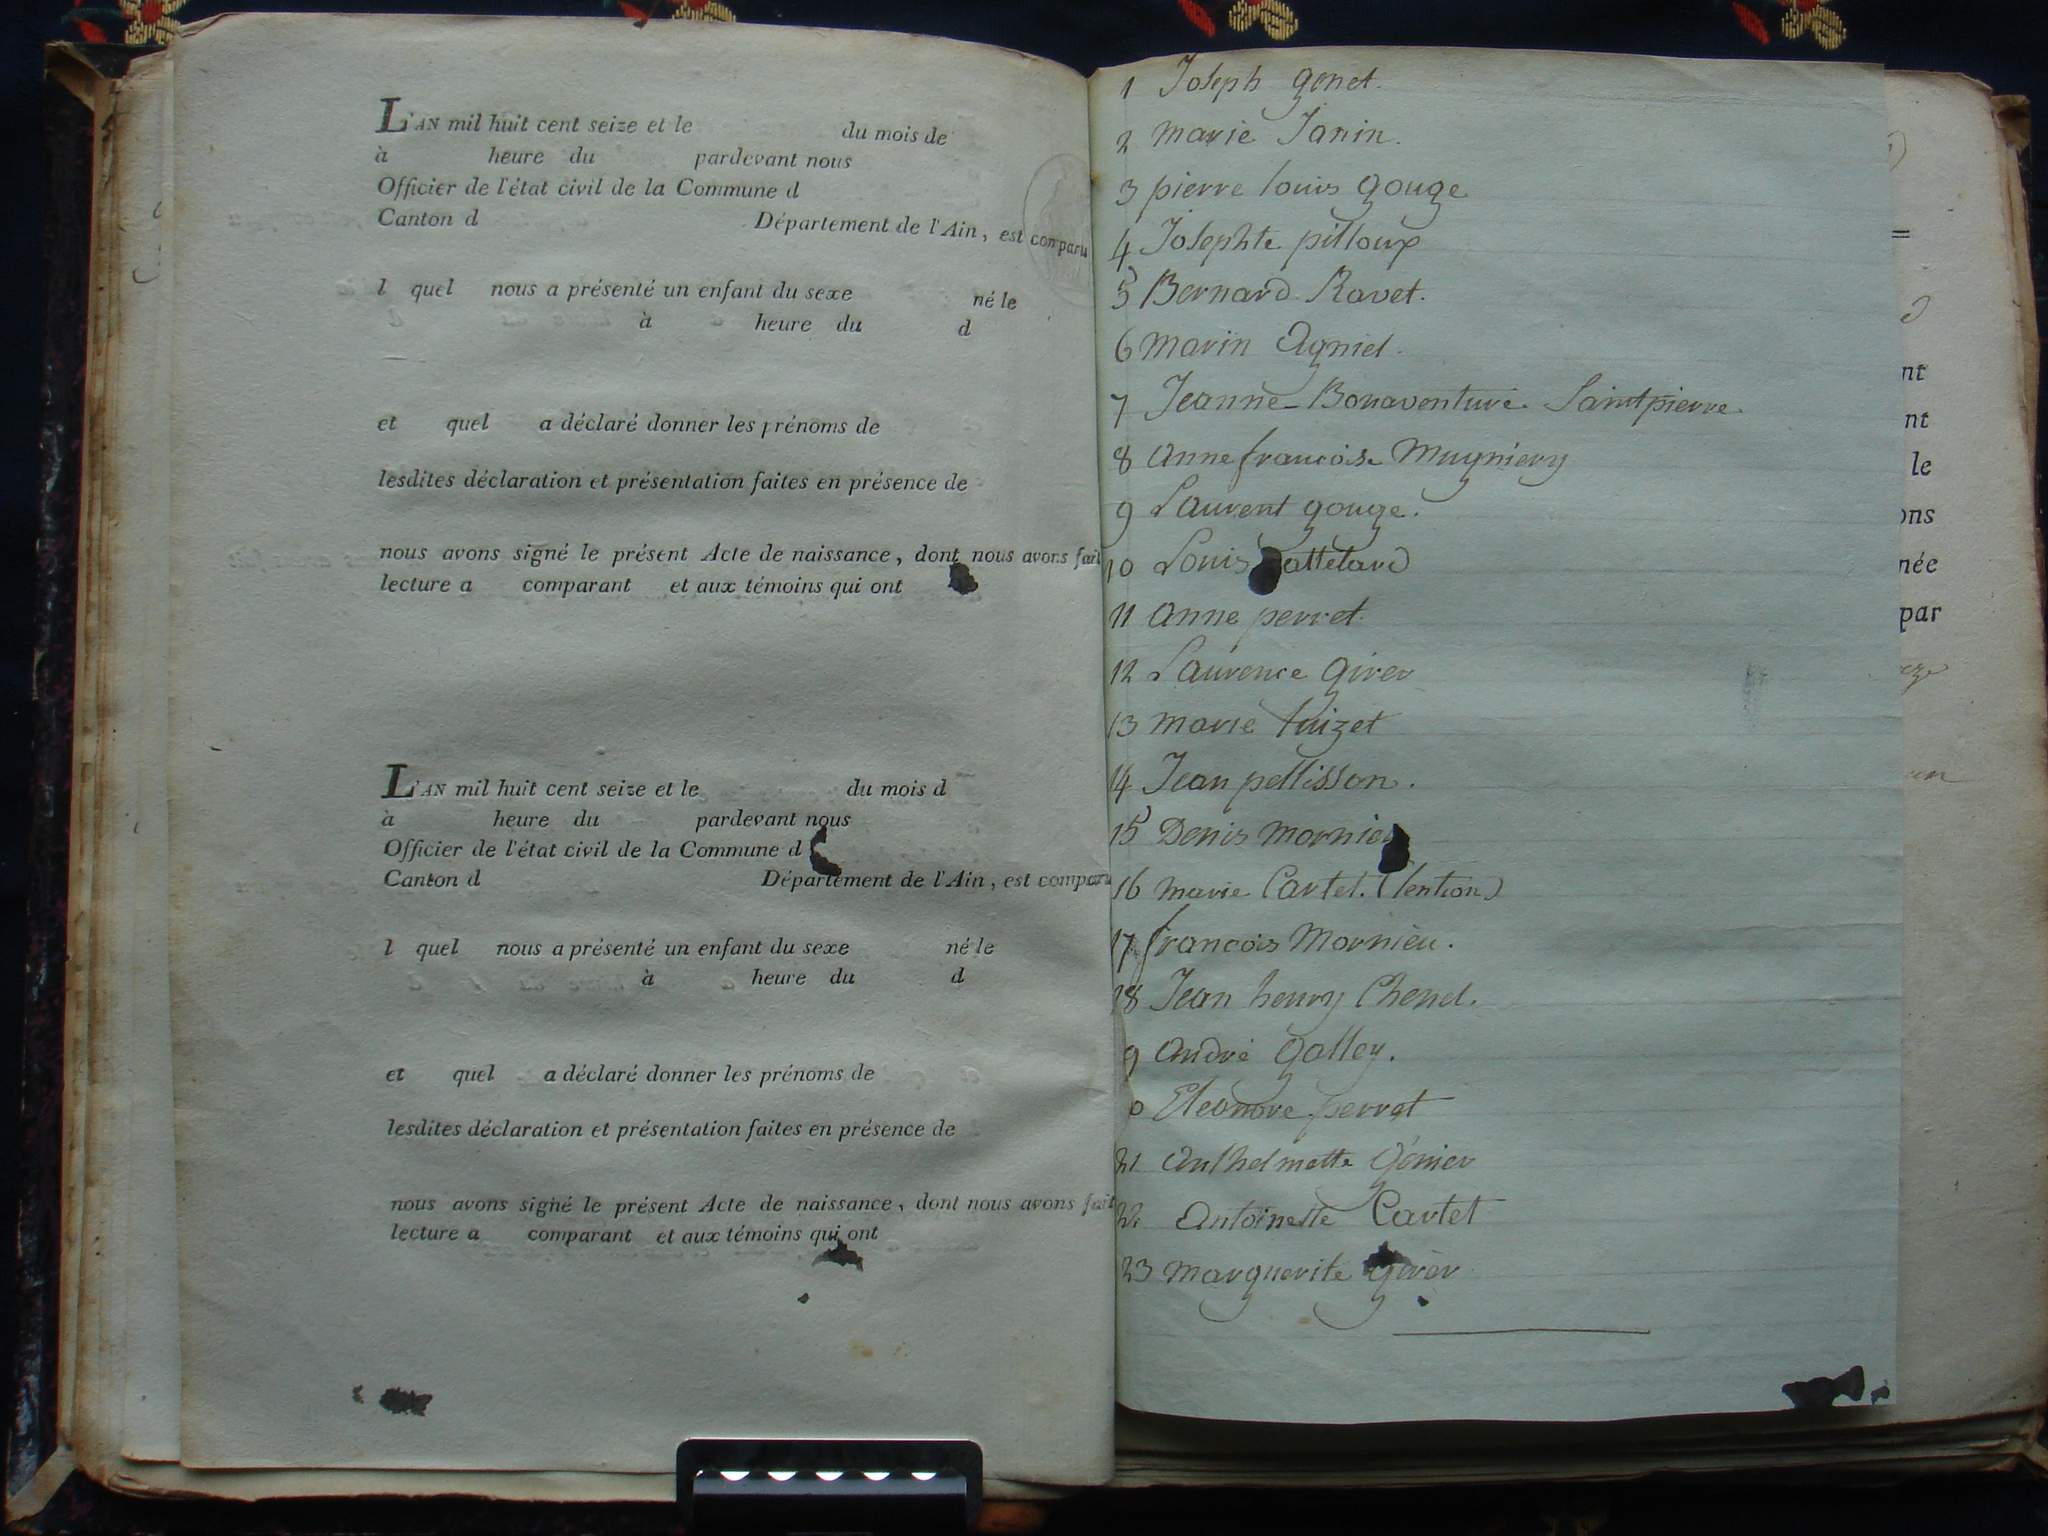 L'AN mil huit cent seize et le du mois de
à heure du pardevant nous
Officier de l'état civil de la Commune d
Canton d Département de l'Ain, est comparu
l quel nous a présenté un enfant du sexe né le
à heure du d
et quel a déclaré donner les prénoms de
lesdites déclaration et présentation faites en présence de
nous avons signé le présent Acte de naissance, dont nous avons fait
lecture a comparant et aux témoins qui ont
L'AN mil huit cent seize et le du mois d
à heure du pardevant nous
Officier de l'état civil de la Commune d
Canton d Département de l'Ain, est comparu
l quel nous a présenté un enfant du sexe né le
à heure du d
et quel a déclaré donner les prénoms de
lesdites déclaration et présentation faites en présence de
nous avons signé le présent Acte de naissance, dont nous avons fait
lecture a comparant et aux témoins qui ont
1 Joseph genet.
2 marie Janin.
3 pierre louis gouge
4 Josephte pilloux
5 Bernard Ravet.
6 marin Agniel.
7 Jeanne Bonaventure Saintpierre
8 anne francoise Mugniery
9 Laurent gouge.
10 Louis attelard
11 anne perret.
12 Laurence girer
13 marie luizet
14 Jean pellisson.
15 Denis mornieu
16 marie Cartet. (lention)
17 francois Mornieu.
18 Jean henry Chenel.
9 André galley.
0 Eleonore perret
21 Anthelmette génier
22 Antoinette Cartet
23 marguerite girer
nt
nt
le
ons
née
par